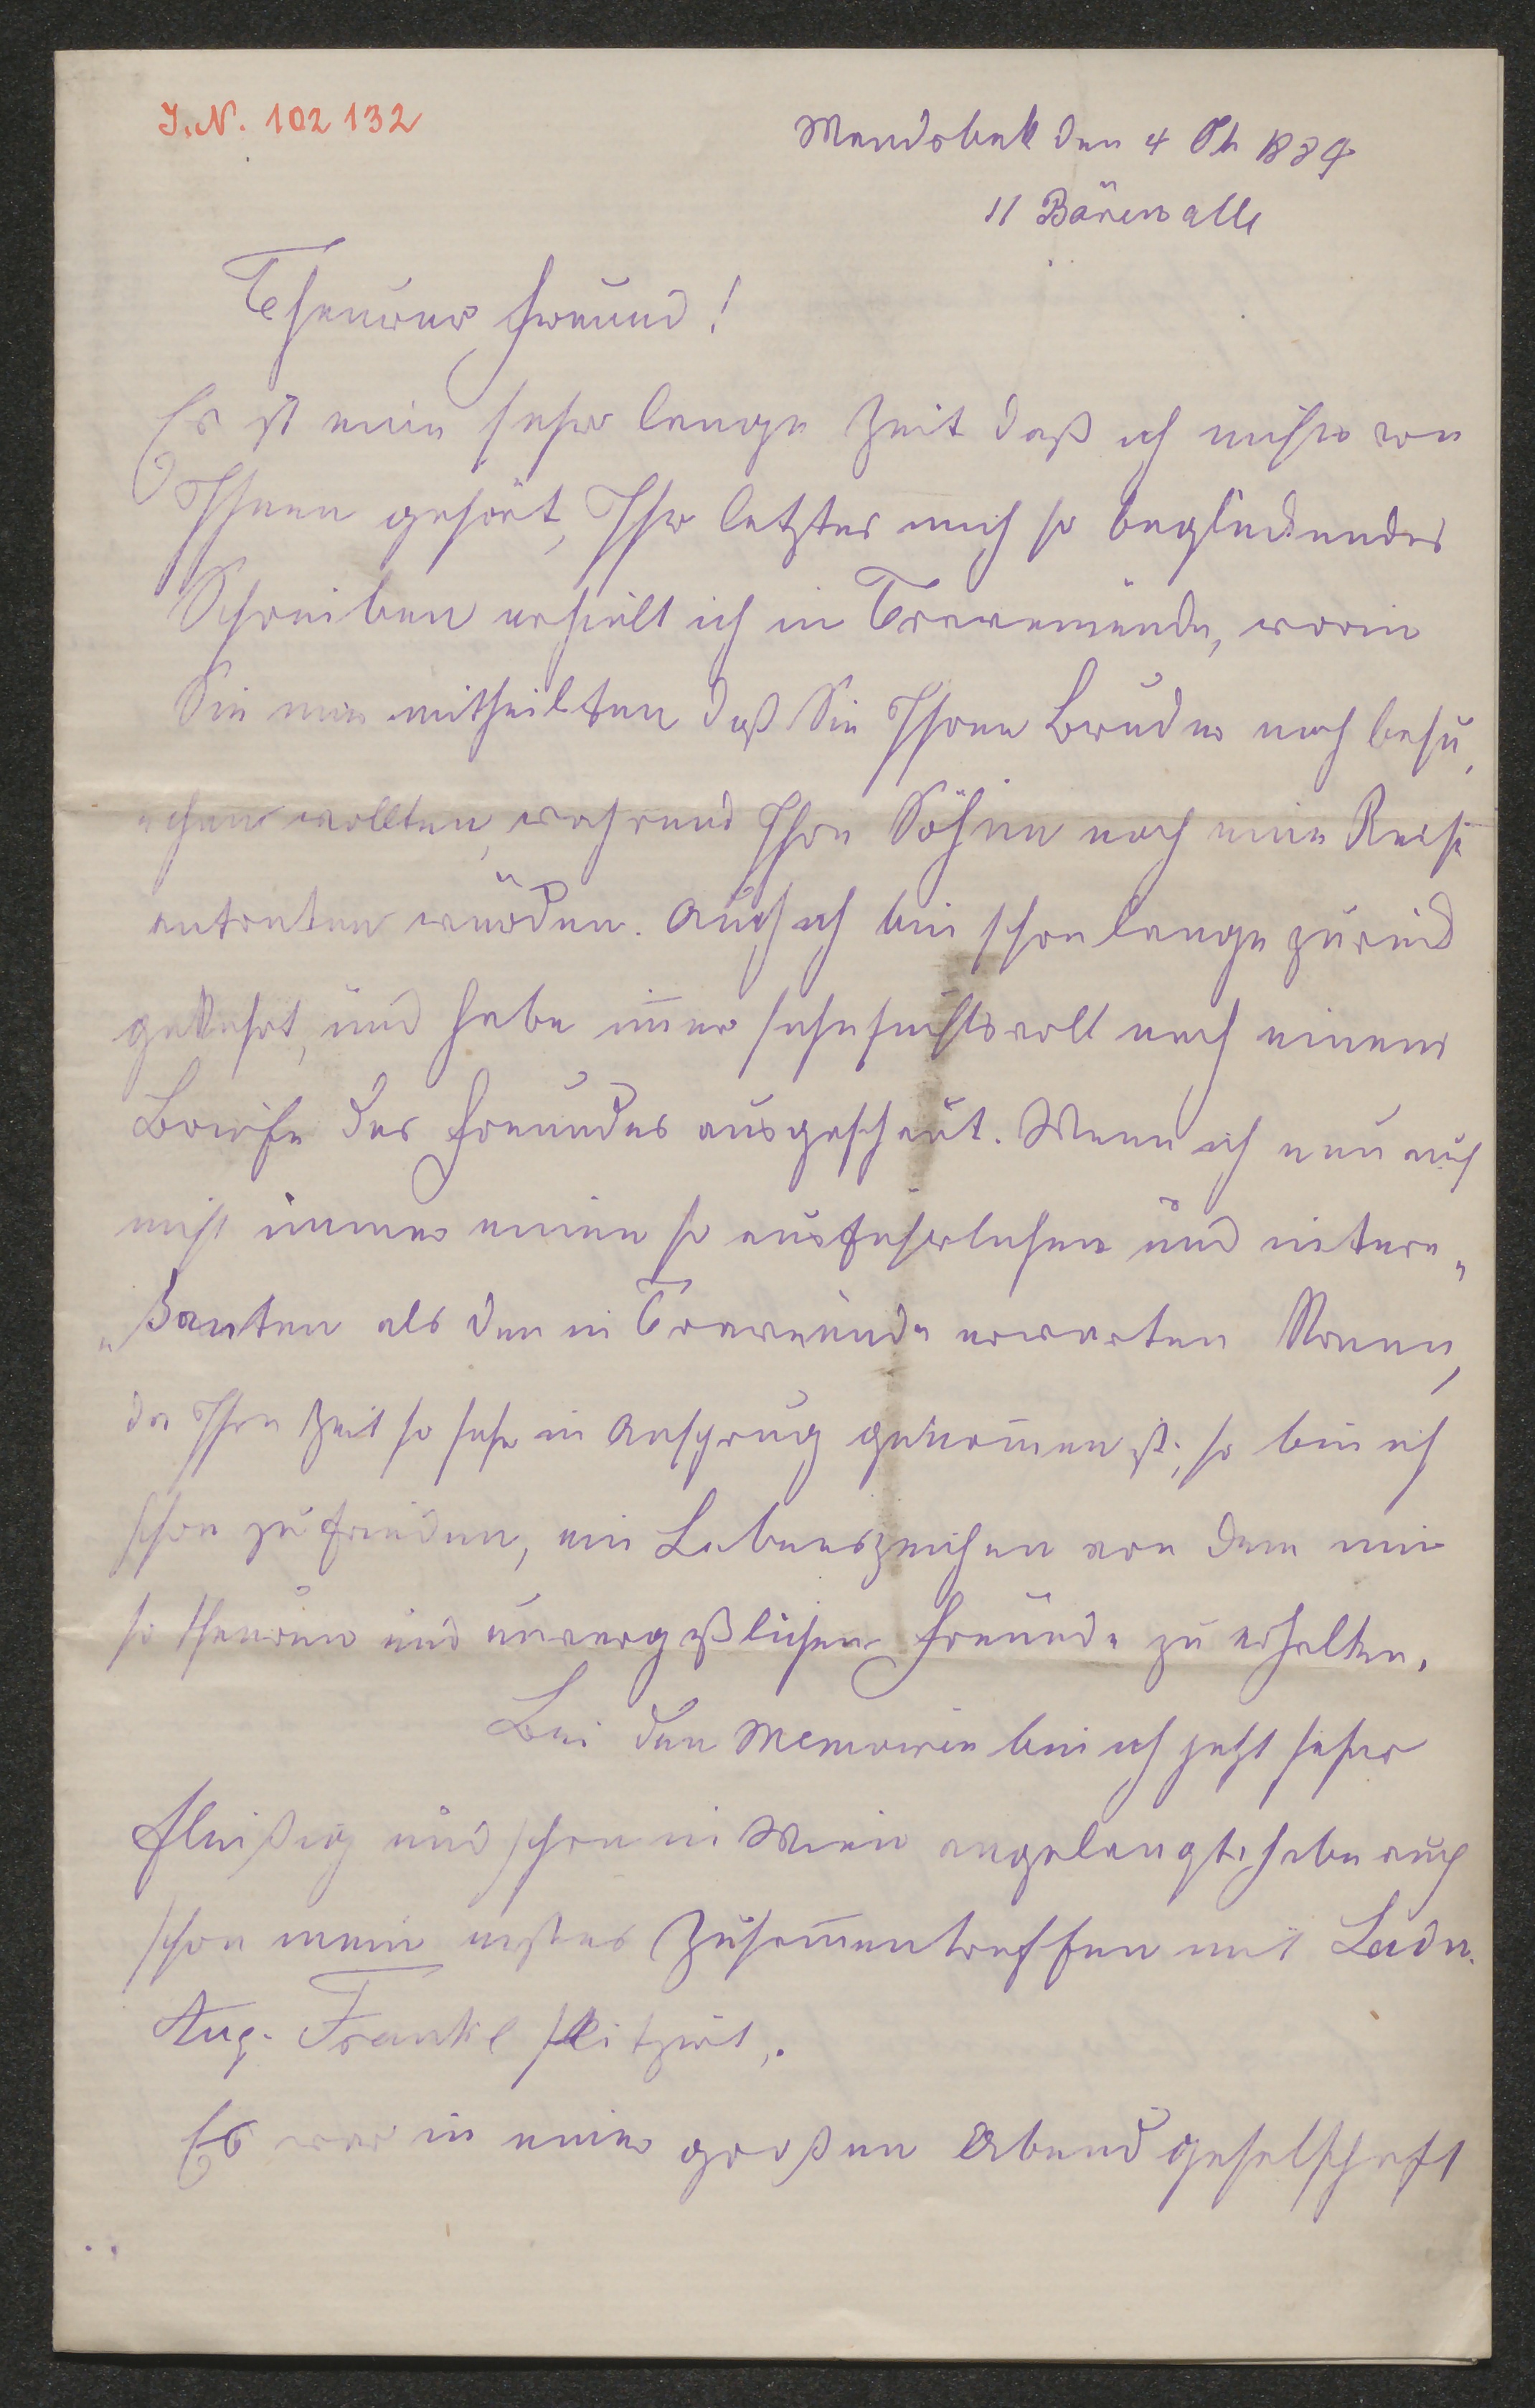 J.N. 102132
Wandsbek den 4 Ok 1889
11 Bärenalle
Theurer Freund!
Es ist eine sehr lange Zeit daß ich nichts von
Ihnen gehört, Ihr letztes mich so beglückendes
Schreiben erhielt ich in Travemünde, worin
Sie mir mittheilten daß Sie Ihren Bruder noch besu,
chen wollten, während Ihre Söhne noch eine Reise
antreten würden. Auch ich bin schon lange zurück
gekehrt, und habe im̅er sehnsuchtsvoll nach einem
Briefe des Freundes ausgeschaut. Wenn ich nun auch
nicht immer einen so ausfuhrlichen und intere„
„ßanten als den in Travemünde erwarten kann,
da Ihre Zeit so sehr in Anspruch genom̅en ist, so bin ich
schon zufrieden, ein Lebenszeichen von dem mir
so theuren und unvergeßlichen Freunde zu erhalten.
Bei den Memoiren bin ich jetzt sehr
fleißig und schon in Wien angelangt, habe auch
schon mein erstes Zusam̅entreffen mit Ludw.
Aug. Frankl skitzirt.
Es war in einer großen Abendgeselschaft